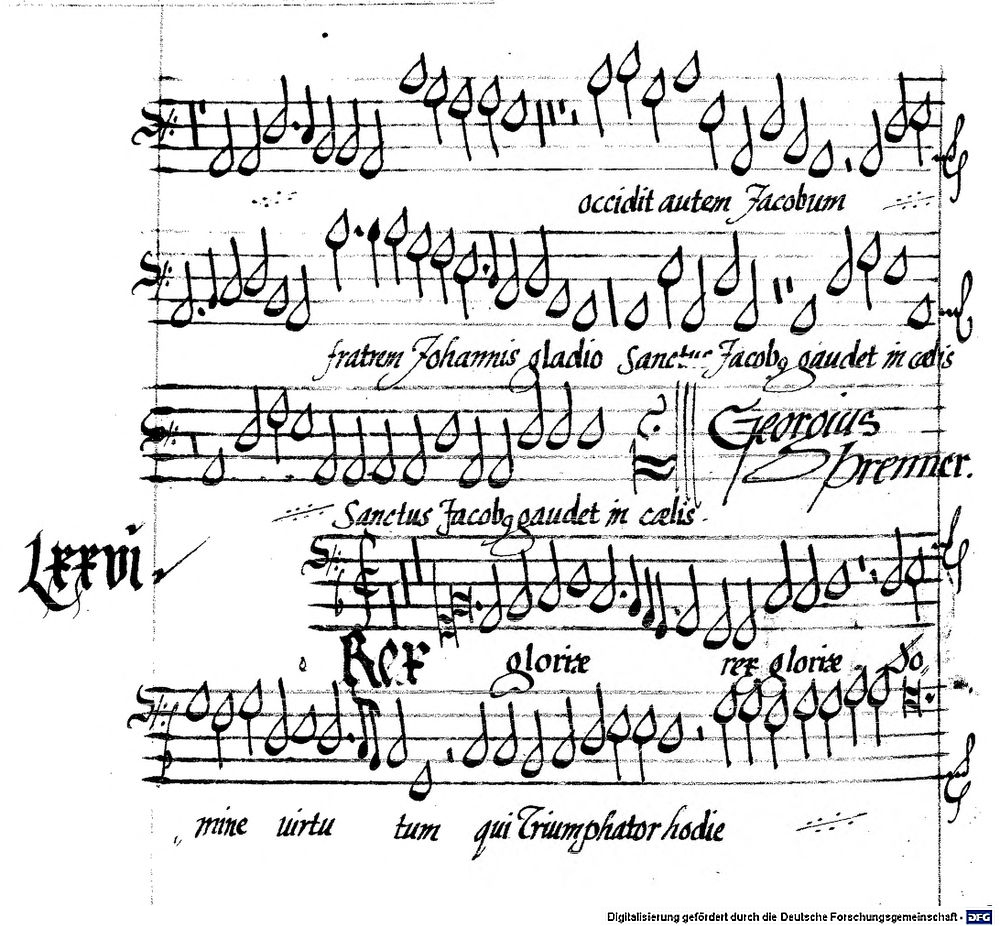 occidit autem Jacobum
fratrem Johannis gladio Sanctus Jacobꝰ gaudet in cælis
Georgius
prenner.
Sanctus Jacobꝰ gaudet in cælis.
Lxxvi
Rex gloriæ rex gloriæ Do,
mine virtu tum qui Triumphator hodie
Digitalisierung gefördert durch die Deutsche Forschungsgemeinschaft - DFG